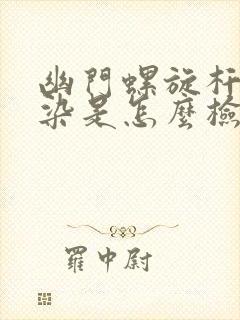 幽門螺旋杆
染是怎麼檢
羅中尉